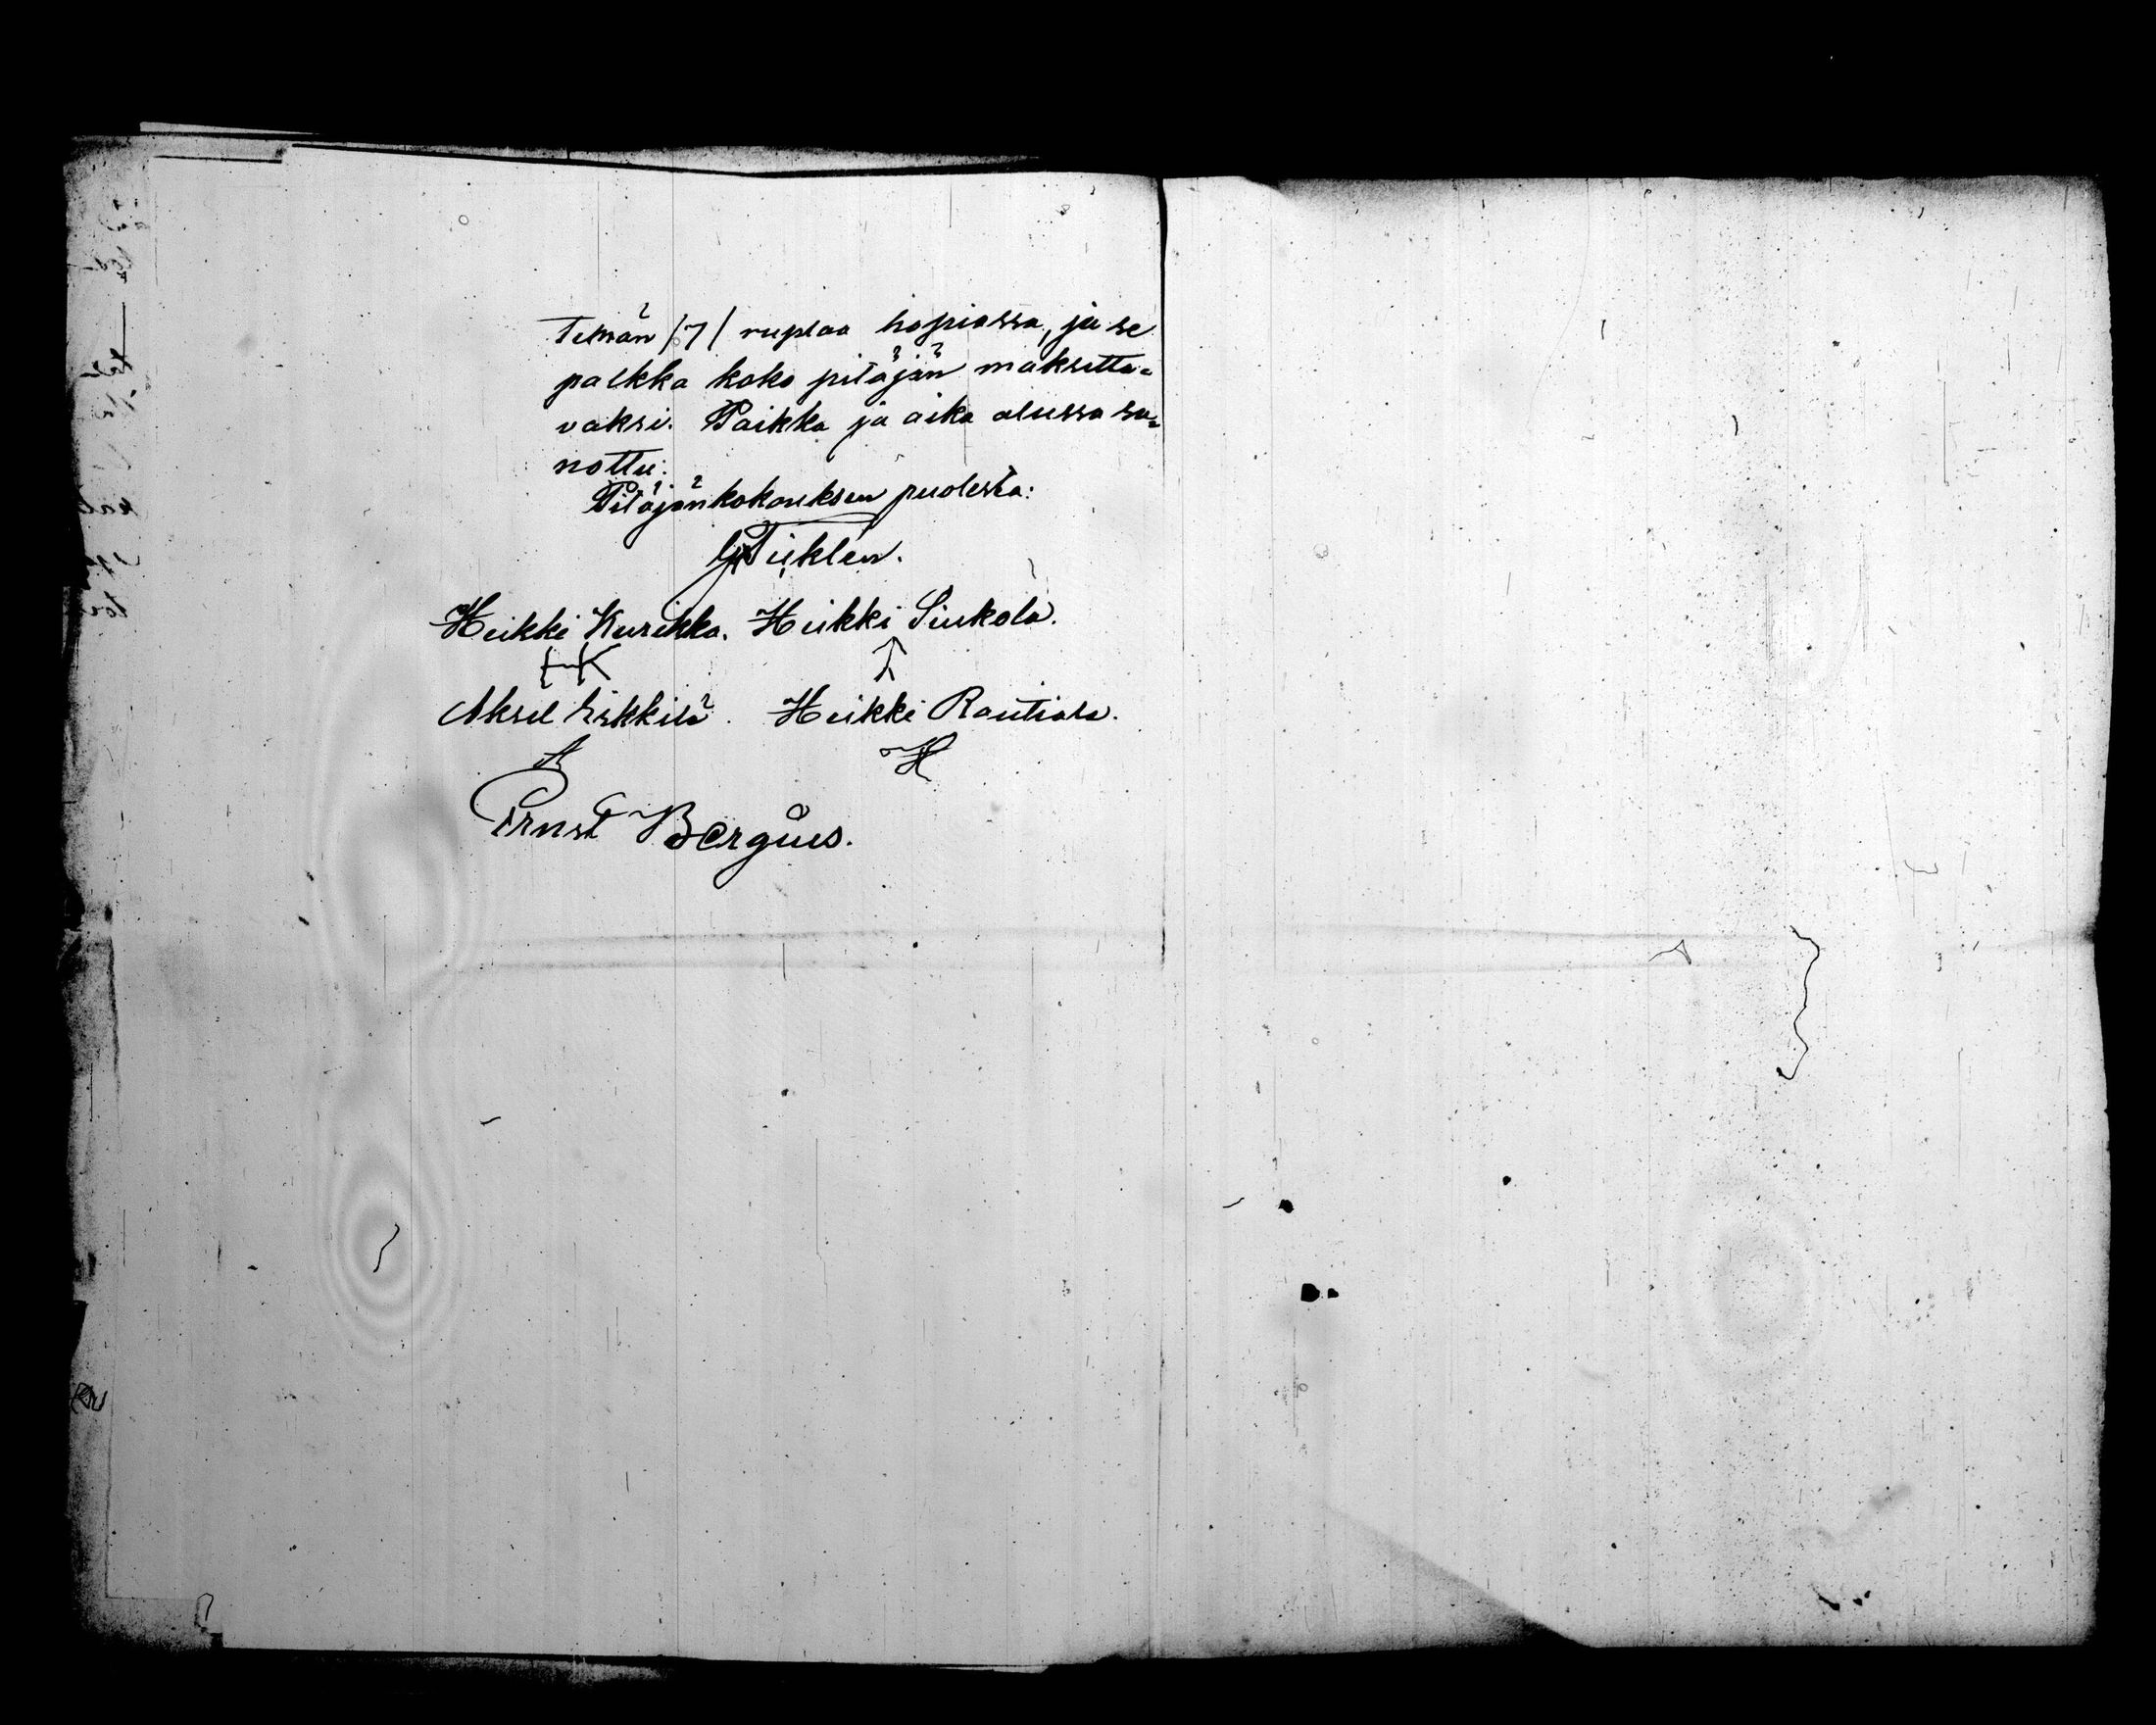 temän /7/ ruplaa hopiassa, ja se
palkka koko pitäjän maksetta=
vaksi. Paikka ja aika alussa sa=
nottu.
Pitäjänkokouksen puolesta:
Heikki Kurikka. Heikki Siukola.
HK
Aksel Erkkilä. Heikki Rautiala.
A H
Ernst Bergius.